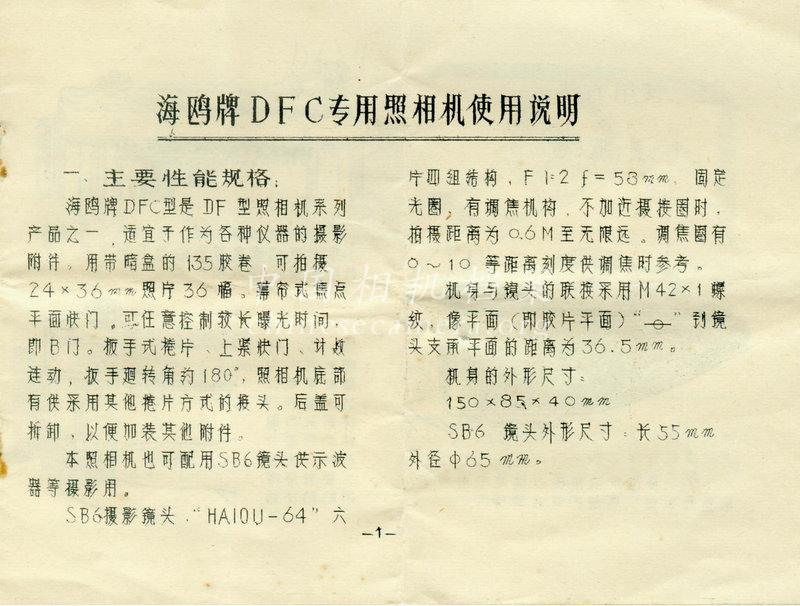 海鸥牌DFC专用照相机使用说明
一、主要性能规格：
海鸥牌DFC型是DF型照相机系列
产品之一，适宜于作为各种仪器的摄影
附件。用带暗盒的135胶卷，可拍摄
24×36mm照片36幅。幕帘式焦点
平面快门。可任意控制较长曝光时间，
即B门。扳手式捲片、上紧快门、计数
连动，扳手迴转角约180°，照相机底部
有供采用其他捲片方式的接头。后盖可
拆卸，以便加装其他附件。
本照相机也可配用SB6镜头供示波
器等摄影用。
SB6摄影镜头，“HAIOU-64”六
片四组结构，F1:2 f=58mm，固定
光圈，有调焦机构，不加近摄接圈时，
拍摄距离为0.6M至无限远。调焦圈有
0～10等距离刻度供调焦时参考。
机身与镜头的联接采用M42×1螺
纹，像平面（即胶片平面）“⦵”到镜
头支承平面的距离为36.5mm。
机身的外形尺寸：
150×85×40mm
SB6 镜头外形尺寸：长55mm
外径φ65mm。
—1—
中国相机档案